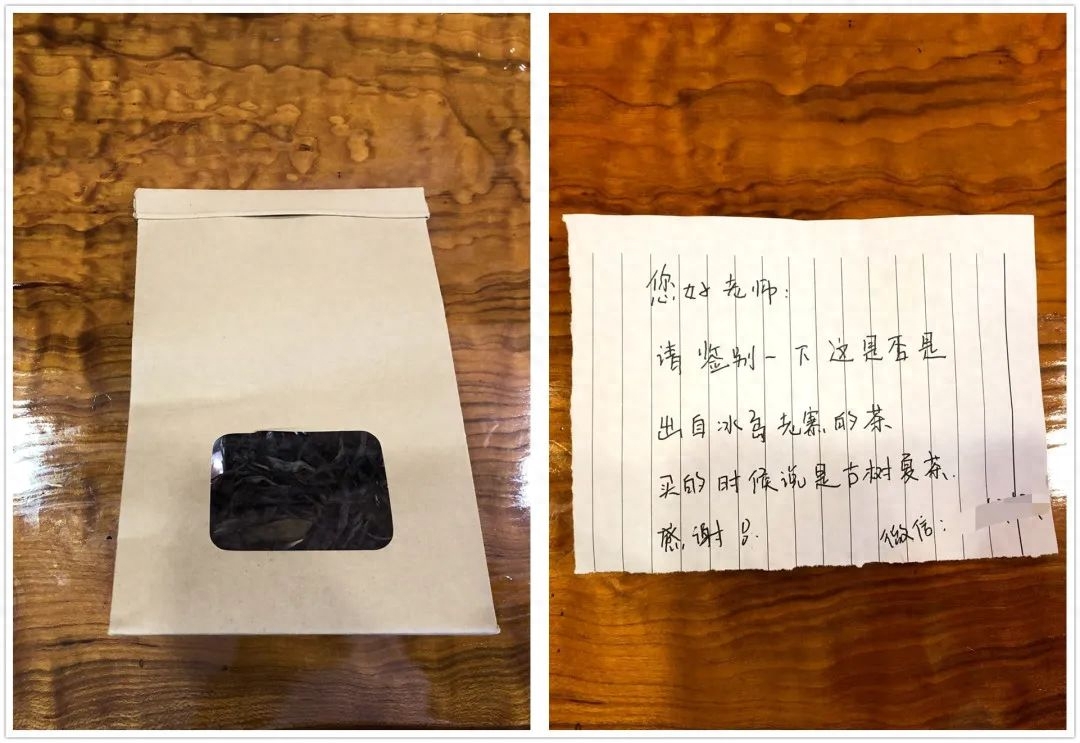 您好老师:
请鉴别一下这是否是
出自冰岛老寨的茶
买的时候说是古树夏茶.
感谢!!
微信: